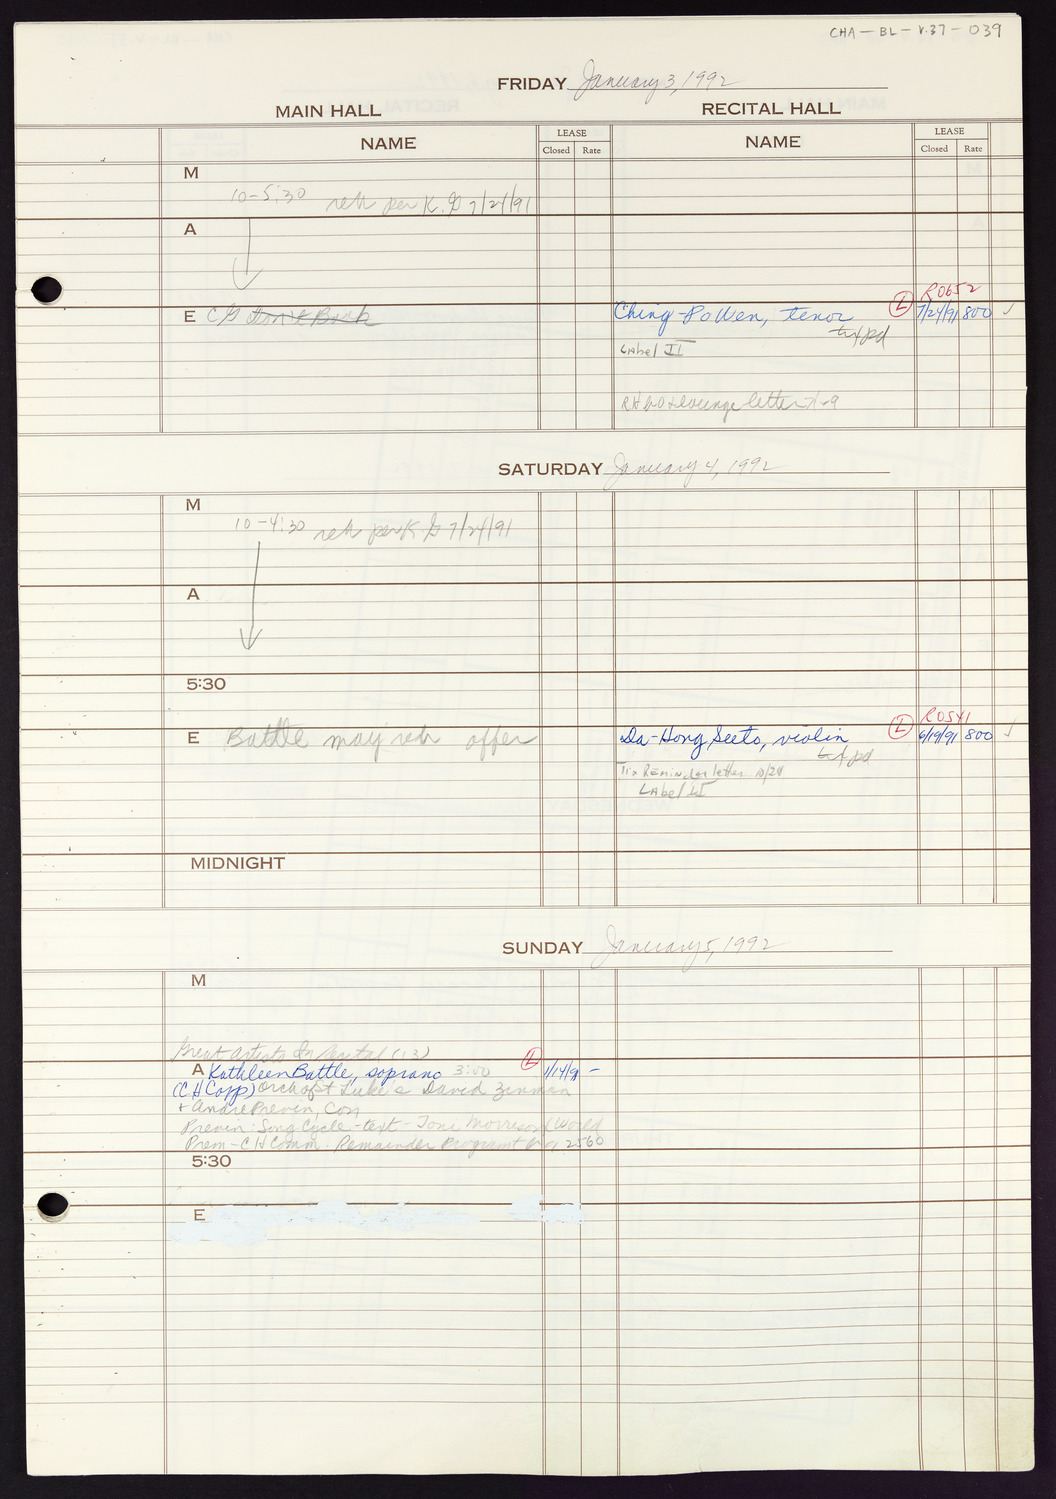 CHA-BL-V.37-039
FRIDAY January 3, 1992
MAIN HALL RECITAL HALL
NAME LEASE NAME LEASE
Closed Rate Closed Rate
M
10-5:30 reh per K. G 7/24/91
A
R0652
E CG Don't Book Ching-Po Wen, tenor L 7/24/91 800 ✓
txf pd
Label II
letter
SATURDAY January 4, 1992
M
10-4:30 reh per K G 7/24/91
A
5:30
R0541
E Battle may reh offer Da-Hong Seeto, violin L 6/19/91 800 ✓
txf pd
Tix Reminder letter 10/24
Label II
MIDNIGHT
SUNDAY January 5, 1992
M
Great Artists In Recital (13)
A Kathleen Battle, soprano 3:00 L 1/14/91 -
(CH Corp) Orch of St Luke's David Zinman
+ Andre Previn, Con
Previn: Song Cycle - text - Toni Morrison (World
Prem - CH Comm. Remainder Program 2560
5:30
E